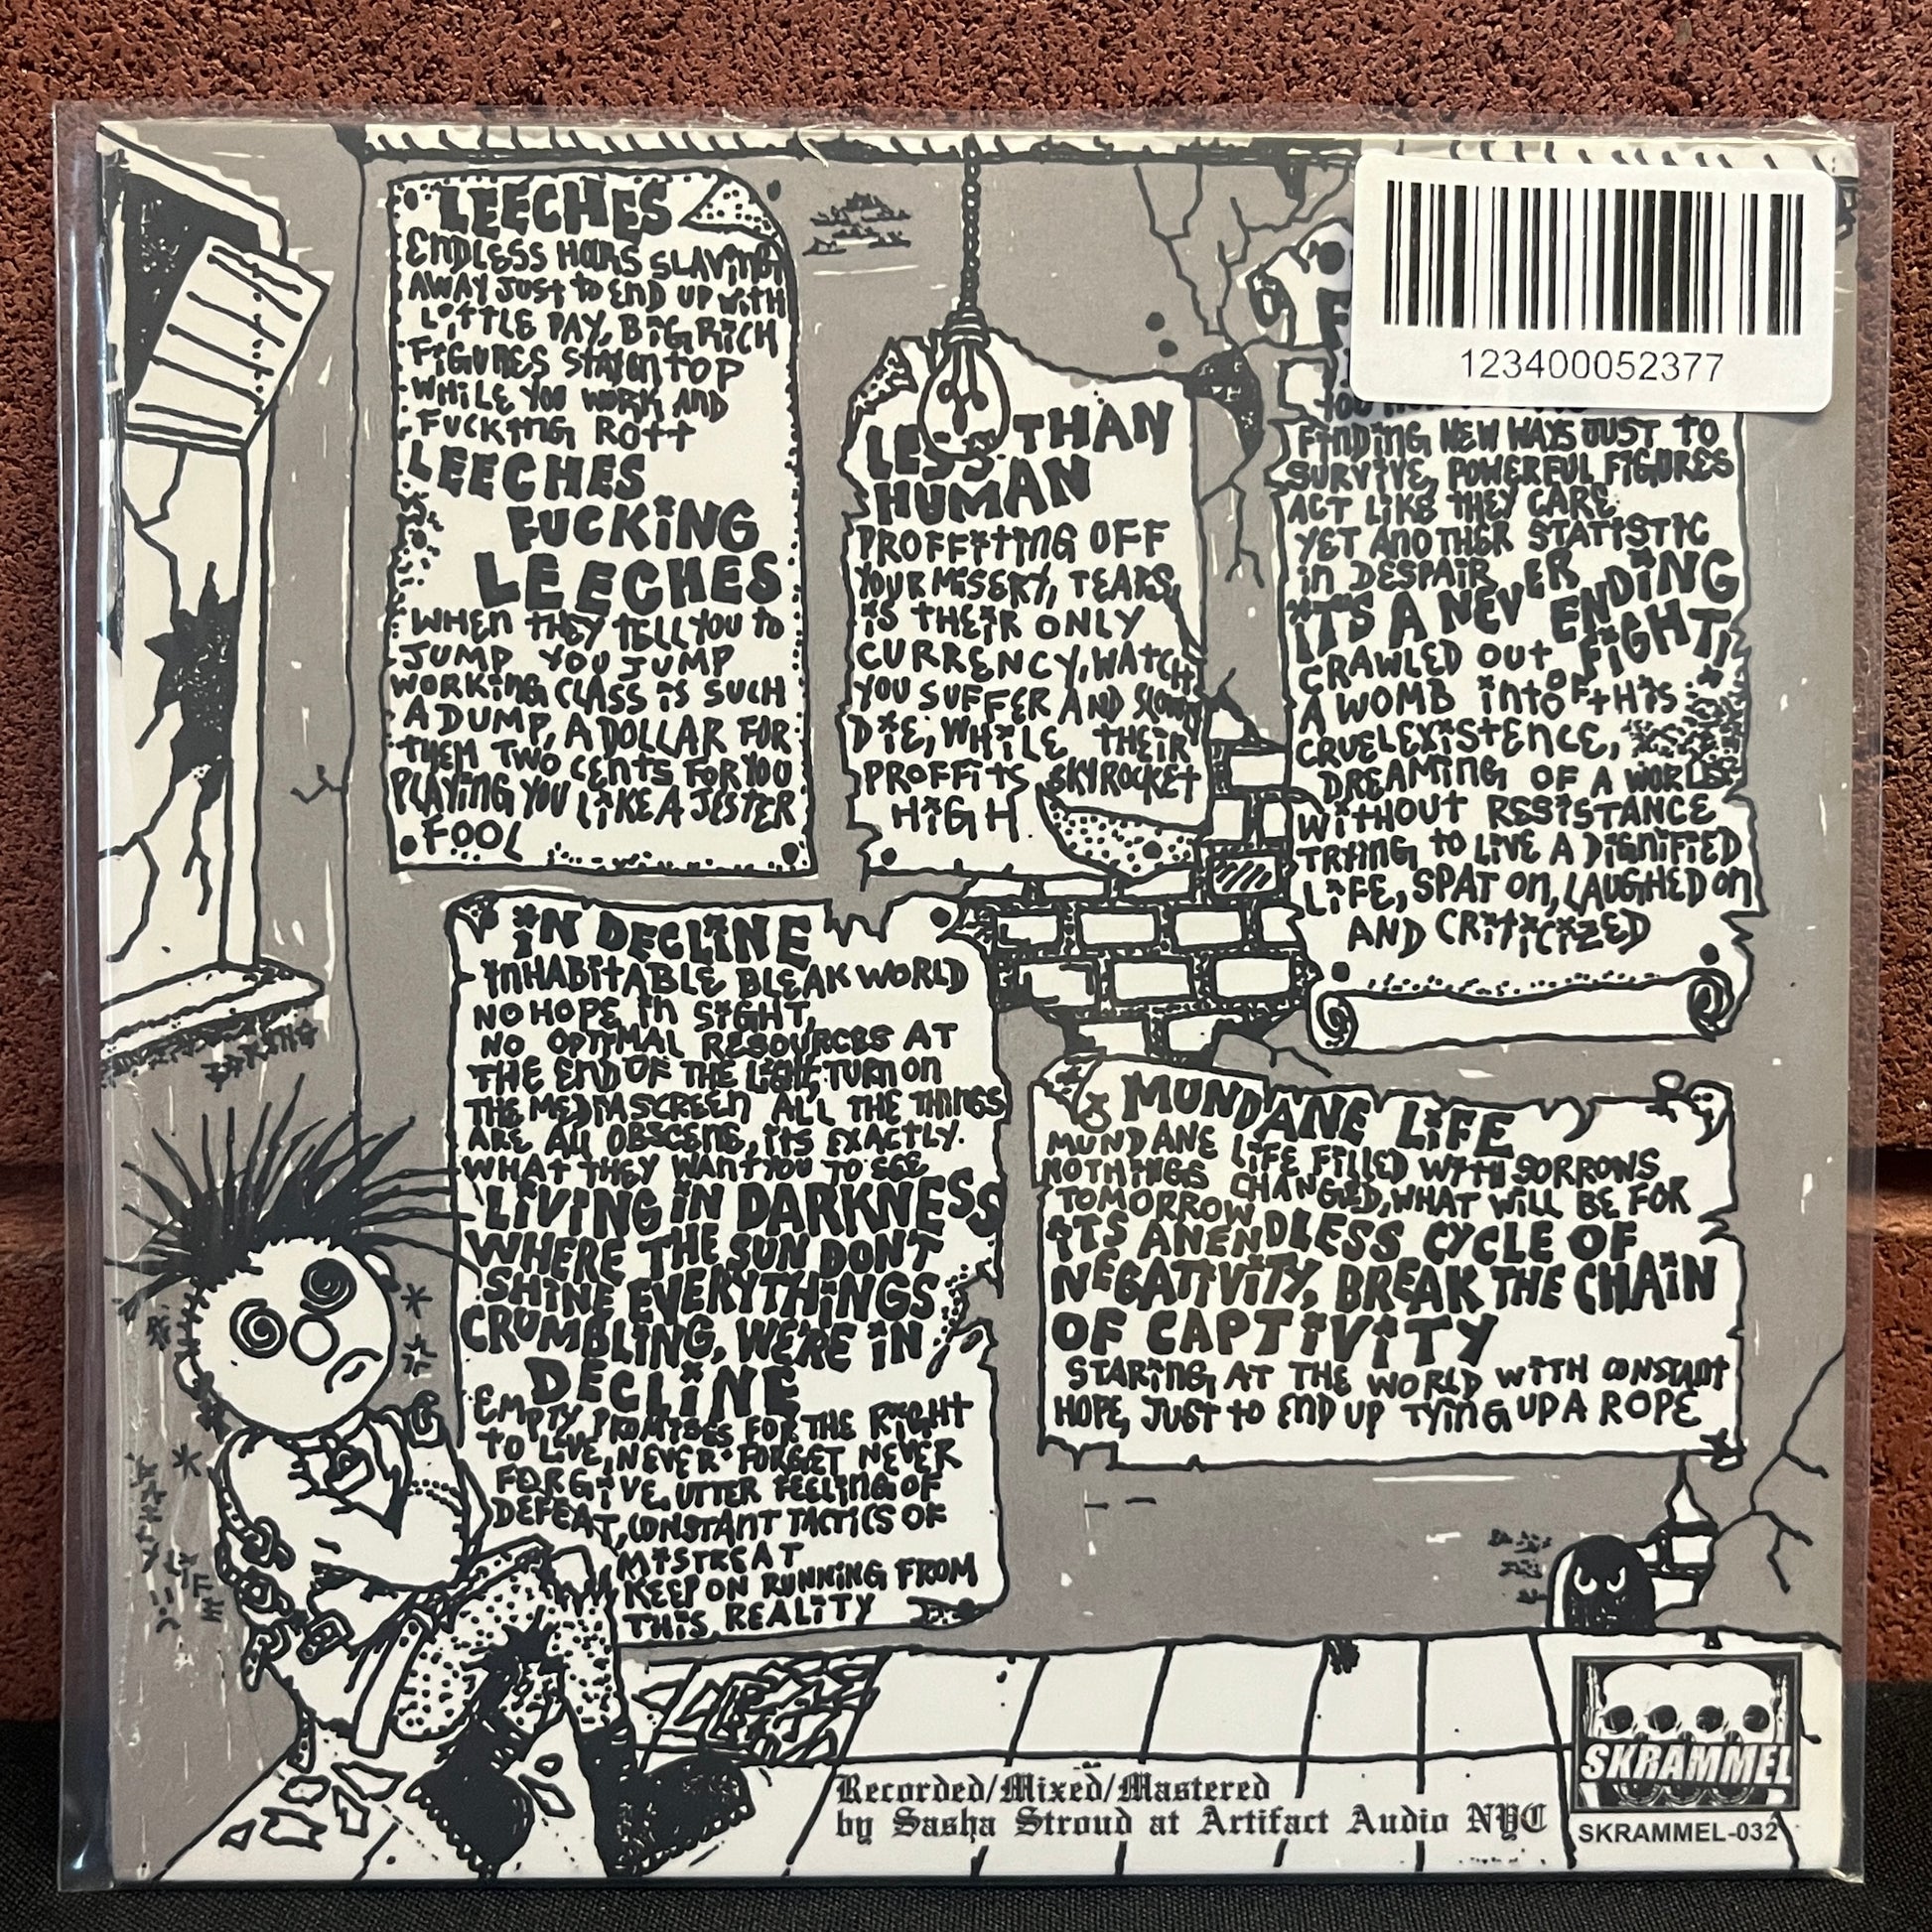 LEECHES
ENDLESS HOURS SLAVING
AWAY JUST TO END UP WITH
LITTLE PAY, BIG RICH
FIGURES STAY ON TOP
WHILE YOU WORK AND
FUCKING ROTT
LEECHES
FUCKING
LEECHES
WHEN THEY TELL YOU TO
JUMP YOU JUMP
WORKING CLASS IS SUCH
A DUMP, A DOLLAR FOR
THEM TWO CENTS FOR YOU
PLAYING YOU LIKE A JESTER
FOOL
LESS THAN
HUMAN
PROFFITING OFF
YOUR MISERY, TEARS,
IS THEIR ONLY
CURRENCY, WATCH
YOU SUFFER AND SLOWLY
DIE, WHILE THEIR
PROFFITS SKYROCKET
HIGH
123400052377
FINDING NEW WAYS JUST TO
SURVIVE, POWERFUL FIGURES
ACT LIKE THEY CARE
YET ANOTHER STATISTIC
IN DESPAIR
IT'S A NEVER ENDING
FIGHT,
CRAWLED OUT OF
A WOMB INTO THIS
CRUEL EXISTENCE,
DREAMING OF A WORLD
WITHOUT RSSISTANCE
TRYING TO LIVE A DIGNIFIED
LIFE, SPAT ON, LAUGHED ON
AND CRITICIZED
IN DECLINE
INHABITABLE BLEAK WORLD
NO HOPE IN SIGHT,
NO OPTIMAL RESOURCES AT
THE END OF THE LIGHT, TURN ON
THE MEDIA SCREEN ALL THE THINGS
ARE ALL OBSCENE, ITS EXACTLY.
WHAT THEY WANT YOU TO SEE
LIVING IN DARKNESS
WHERE THE SUN DON'T
SHINE EVERYTHINGS
CRUMBLING, WE'RE IN
DECLINE
EMPTY PROMISES FOR THE RIGHT
TO LIVE, NEVER FORGET NEVER
FORGIVE, UTTER FEELING OF
DEFEAT, CONSTANT TACTICS OF
MISTREAT
KEEP ON RUNNING FROM
THIS REALITY
MUNDANE LIFE
MUNDANE LIFE FILLED WITH SORROWS
NOTHINGS CHANGED, WHAT WILL BE FOR
TOMORROW
ITS AN ENDLESS CYCLE OF
NEGATIVITY, BREAK THE CHAIN
OF CAPTIVITY
STARING AT THE WORLD WITH CONSTANT
HOPE, JUST TO END UP TYING UP A ROPE
Recorded/Mixed/Mastered
by Sasha Stroud at Artifact Audio NYC
SKRAMMEL
SKRAMMEL-032